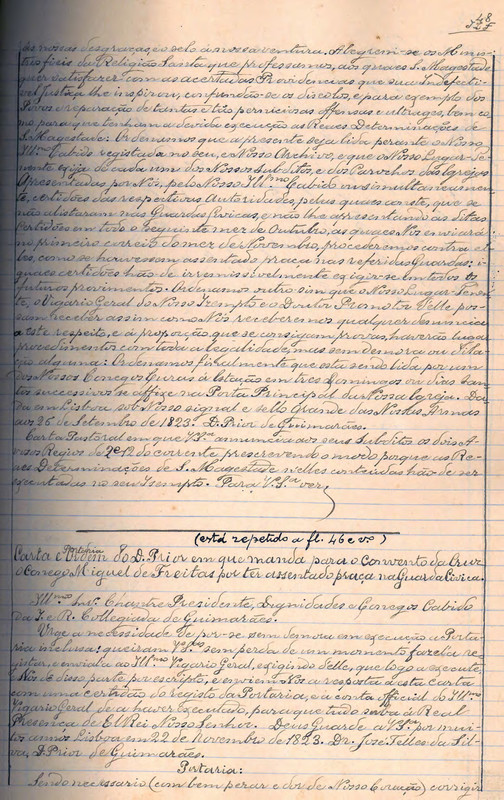 48
ões nossas desgraças, o zelo á nossa ventura. Alegrem-se os Minis-
tros fieis da Religião Santa que professamos, aos quaes S. Magestade
quer satisfazer com as acertadas Providencias que sua Indefecti-
vel Justiça lhe inspirou, confundão-se os discolos, e para exemplo dos
Povos e reparação de tantas e tão perniciosas offensas e ultrages, bem co-
mo, para que tenham a devida execução as Reaes Determinações de
S. Magestade: Ordenamos que a presente seja lida perante o Nosso
Ill.mo Cabido registada no seu, e Nosso Archivo, e que o Nosso Lugar-Te-
nente exija de cada um dos Nossos Subditos, e dos Parochos das Igrejas
Apresentadas por Nós, pelo Nosso Ill.mo Cabido ou simultaneamen-
te, certidões das respectivas Autoridades, pelas quaes conste, que se
não alistaram nas Guardas Civicas, e não lhe apresentando as ditas
Certidões em todo o seguinte mez de Outubro, as quaes Nos enviará
no primeiro correio do mez de Novembro, procederemos contra el-
les, como se houvessem assentado praça nas referidas Guardas: i-
guaes certidões hão de irremissivelmente exigir-se em todos os
futuros provimentos. Ordenamos outro sim que o Nosso Lugar-Tenen-
te, o Vigario Geral do Nosso Izempto e o Doutor Promotor delle pos-
sam receber assim como Nós receberemos qualquer denuncia
a este respeito, e á proporção que se consigam provas, haverão lugar
procedimentos com toda a legalidade, mas sem demora ou dila-
ção alguma: Ordenamos finalmente que esta sendo lida por um
dos Nossos Conegos Curas á Estação em tres Domingos ou dias San-
tos successivos se affixe na Porta Principal da Nossa Igreja. Da-
da em Lisboa sob Nosso signal e sello Grande das Nossas Armas
aos 26 de Setembro de 1823. D. Prior de Guimarães.
Carta Pastoral em que V. S.a annuncia aos seus Subditos os dois A-
visos Regios de 2 e 12 do corrente, prescrevendo o modo porque as Re-
aes Determinações de S. Magestade nelles contidas hão de ser
executadas no seu Izempto. Para V. S.a ver
(está repetido a fl. 46 e vo)
Carta e Portaria Ordem do D. Prior em que manda para o Convento da Cruz
o Conego Miguel de Freitas por ter assentado praça na Guarda Civica.
Ill.mos Snr.s Chantre Presidente, Dignidades e Conegos Cabido
da I. e R. Collegiada de Guimarães.
Urge a necessidade de pôr-se sem demora em execução a Porta-
ria inclusa: queiram V. S.as sem perda de um momento fazel-a re-
gistar, e envial-a ao Ill.mo Vigario Geral, exigindo delle, que logo a execute,
e Nos dê disso parte por escripto, e enviem-Nos a resposta a esta carta
com uma certidão do registo da Portaria, e a conta official do Ill.mo
Vigario Geral de a haver executado, para que tudo suba á Real
Presença de El Rei Nosso Senhor. Deus Guarde a V. S.as por mui-
tos annos Lisboa em 22 de Novembro de 1823. Dr. José Telles da Sil-
va, D. Prior de Guimarães.
Portaria:
Sendo necessario (com bem pezar e dor de Nosso Coração) corrigir